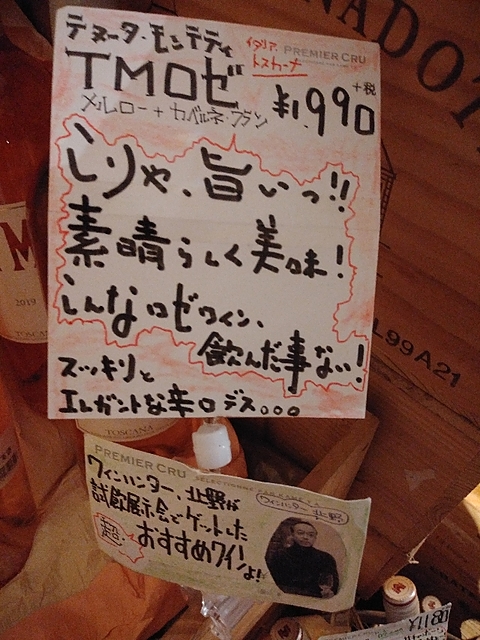 テヌータ・モンテティ
イタリア.
トスカーナ
PREMIER CRU
TMロゼ
メルロー + カベルネ・フラン
¥1,990
+税
こりゃ、旨いっ!!
素晴らしく美味!
こんなロゼワイン、
飲んだ事ない!
スッキリと
エレガントな辛口デス。。。
M
2019
TOSCANA
L99A21
TOSCANA
PREMIER CRU
ワインハンター、北野が
試飲展示会でゲットした
超
おすすめワイン
よ!!
ワインハンター 北野